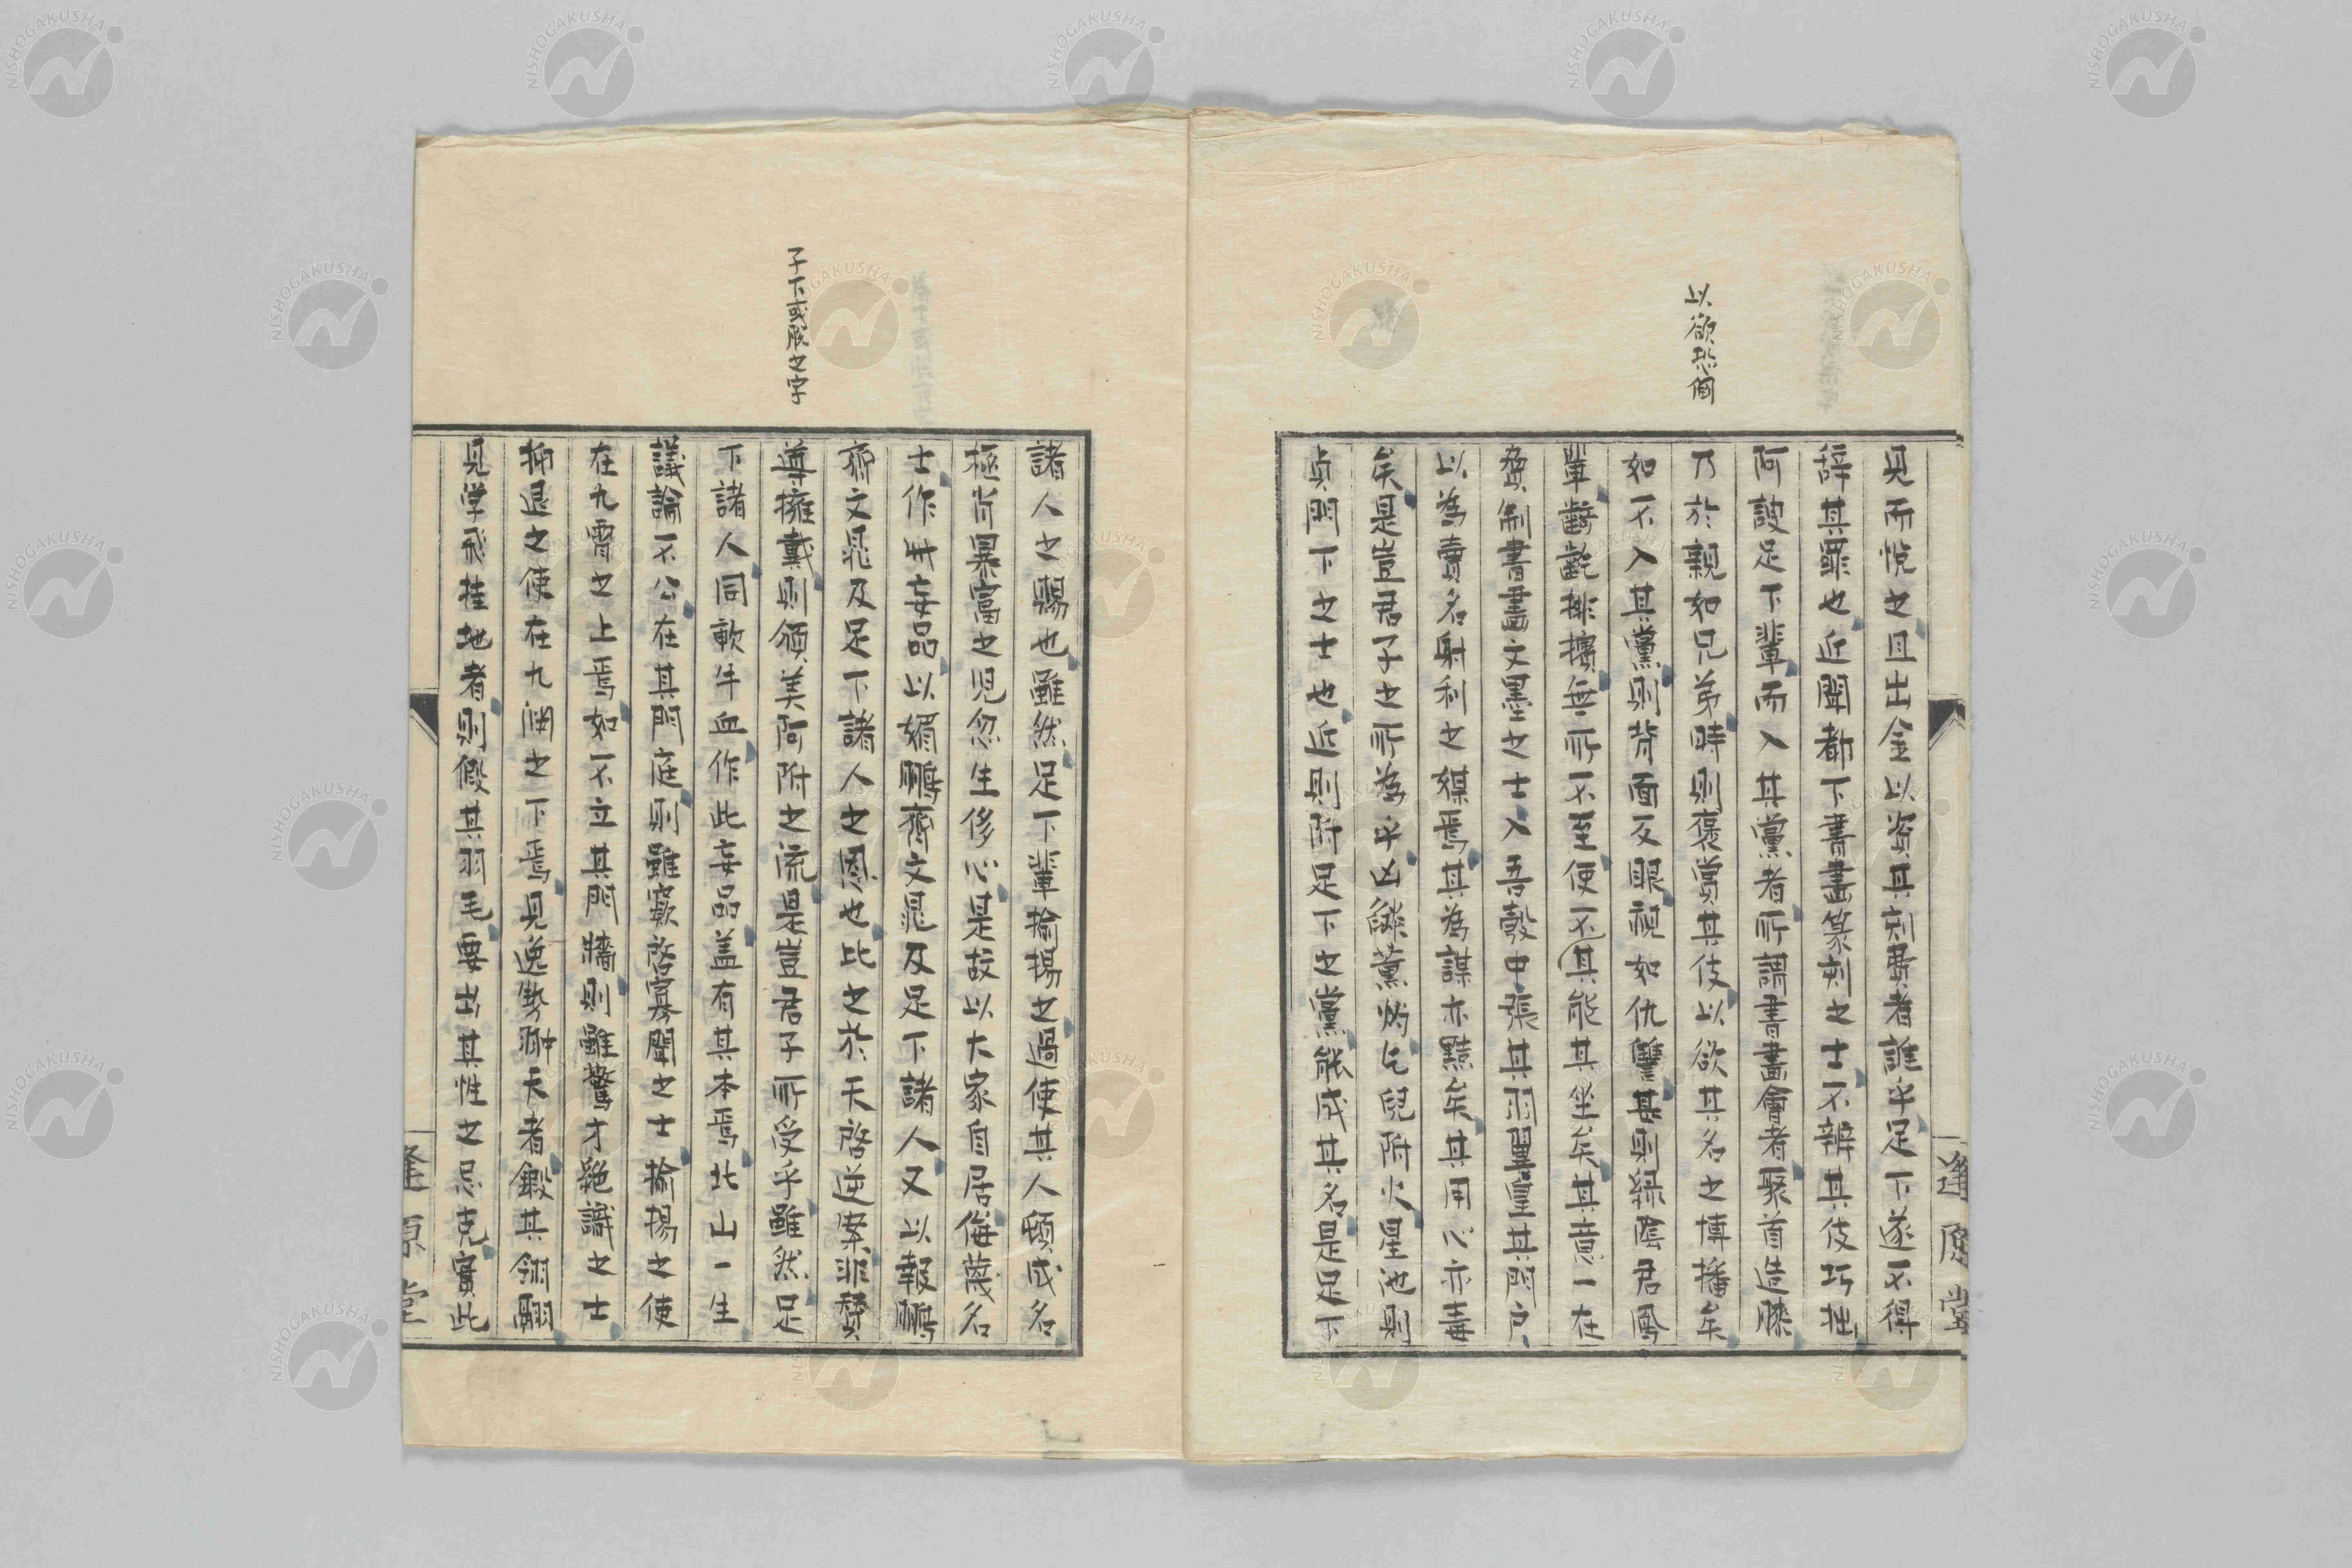 以欲恐倒
見而悦之且出金以資其刻費者誰乎足下遂不得
辞其罪也近聞都下書畫篆刻之士不辨其伎巧拙
阿諛足下輩而入其黨者所謂書畫會者聚首造膝
乃於親如兄弟時則褒賞其伎以欲其名之博播矣
如不入其黨則背面反眼視如仇讐甚則緑陰君鳳
輩齮齕排擯無所不至使不其能其坐矣其意一在
賚制書畫文墨之士入吾彀中張其羽翼皇其門戸
以為賣名射利之媒焉其為謀亦黠矣其用心亦毒
矣是豈君子之所為乎凶燄薫灼乞兒附火星池則
貞門下之士也近則附足下之黨能成其名是足下
逢原堂
子下或脱之字
諸人之賜也雖然足下輩揄揚之過使其人頓成名
極肖暴富之児忽生侈心是故以大家自居侮蔑名
士作此妄品以媚鵬齋文晁及足下諸人又以報鵬
齋文晁及足下諸人之恩也比之於天啓逆案非贊
導擁戴則頌美阿附之流是豈君子所受乎雖然足
下諸人同軟牛血作此妄品盖有其本焉北山一生
議論不公在其門庭則雖窾啓寡聞之士揄揚之使
在九霄之上焉如不立其門牆則雖驚才絶識之士
抑退之使在九淵之下焉見逸勢翀天者鍛其翎翮
見学飛挂地者則假其羽毛要出其性之忌克實此
逢原堂
NISHOGAKUSHA